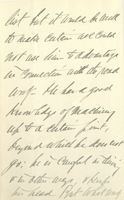 but it would be well
to make certain we could
not use him to advantage
in connection with the
work. He has a good
knowledge of machinery
up to a certain point,
beyond which he does not
go; he is
in other ways,
his head. But what any